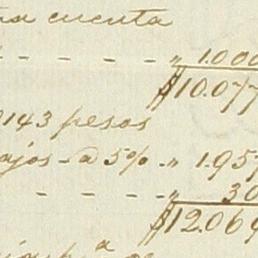 cuenta
- - - - " 1.000
$10.077
143 pesos
ajos - a 5% - " 1.957
- - - " 30
$12.064